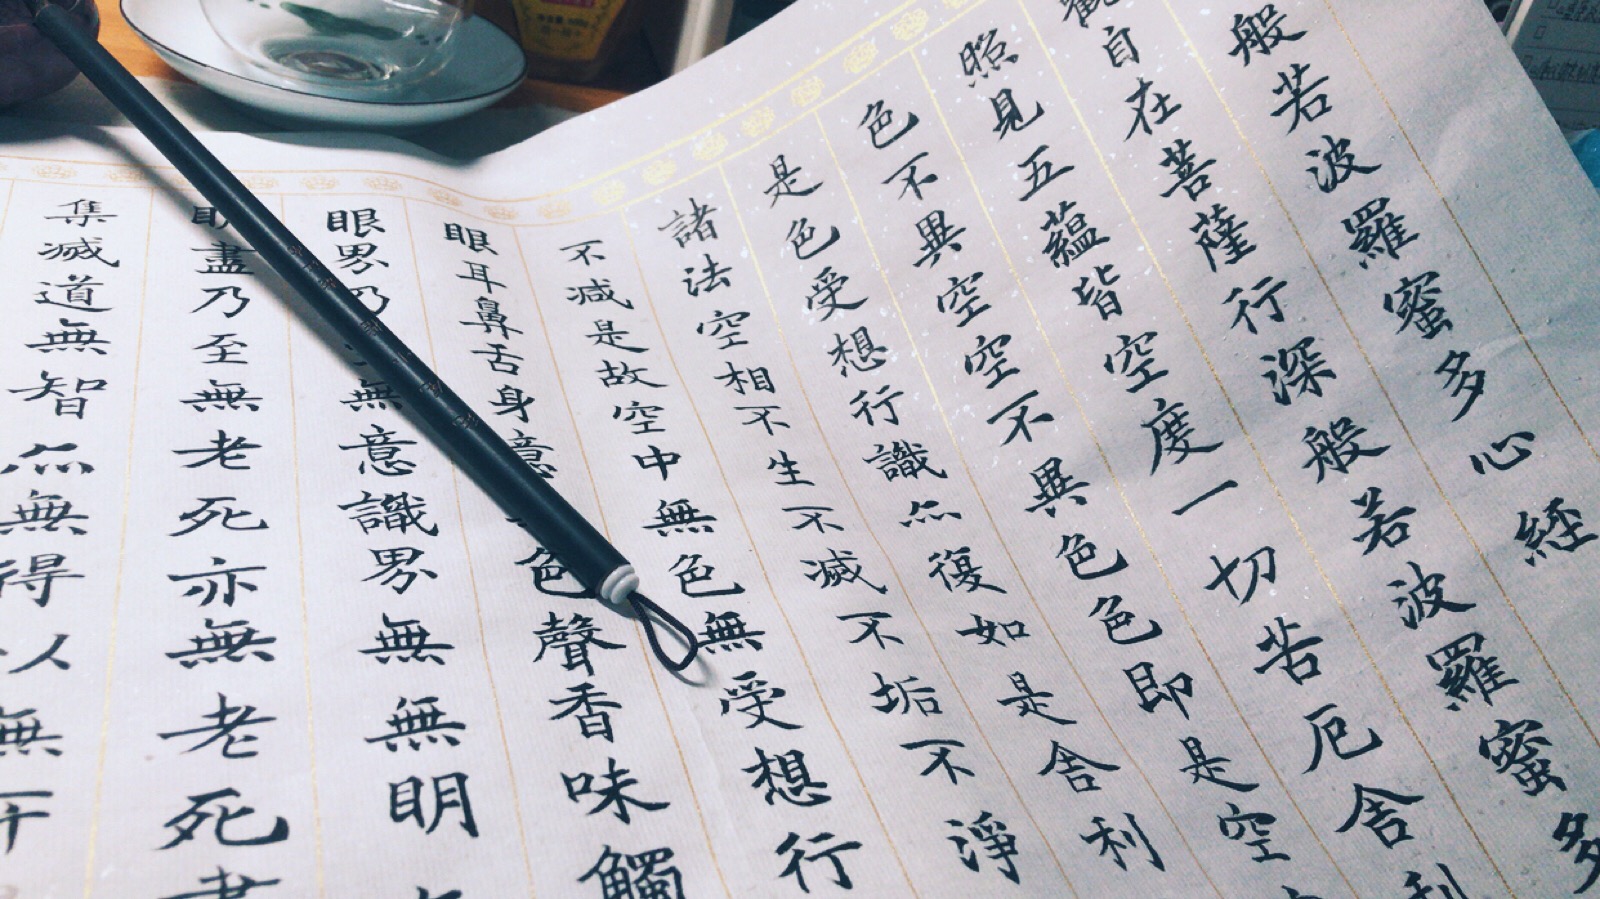 般若波羅蜜多心経
觀自在菩薩行深般若波羅蜜多
照見五蘊皆空度一切苦厄舍利
色不異空空不異色色即是空
是色受想行識亦復如是舍利
諸法空相不生不滅不垢不淨
不減是故空中無色無受想行
眼耳鼻舌身意色聲香味觸
眼界乃無意識界無無明
明盡乃至無老死亦無老死盡
集滅道無智亦無得以無